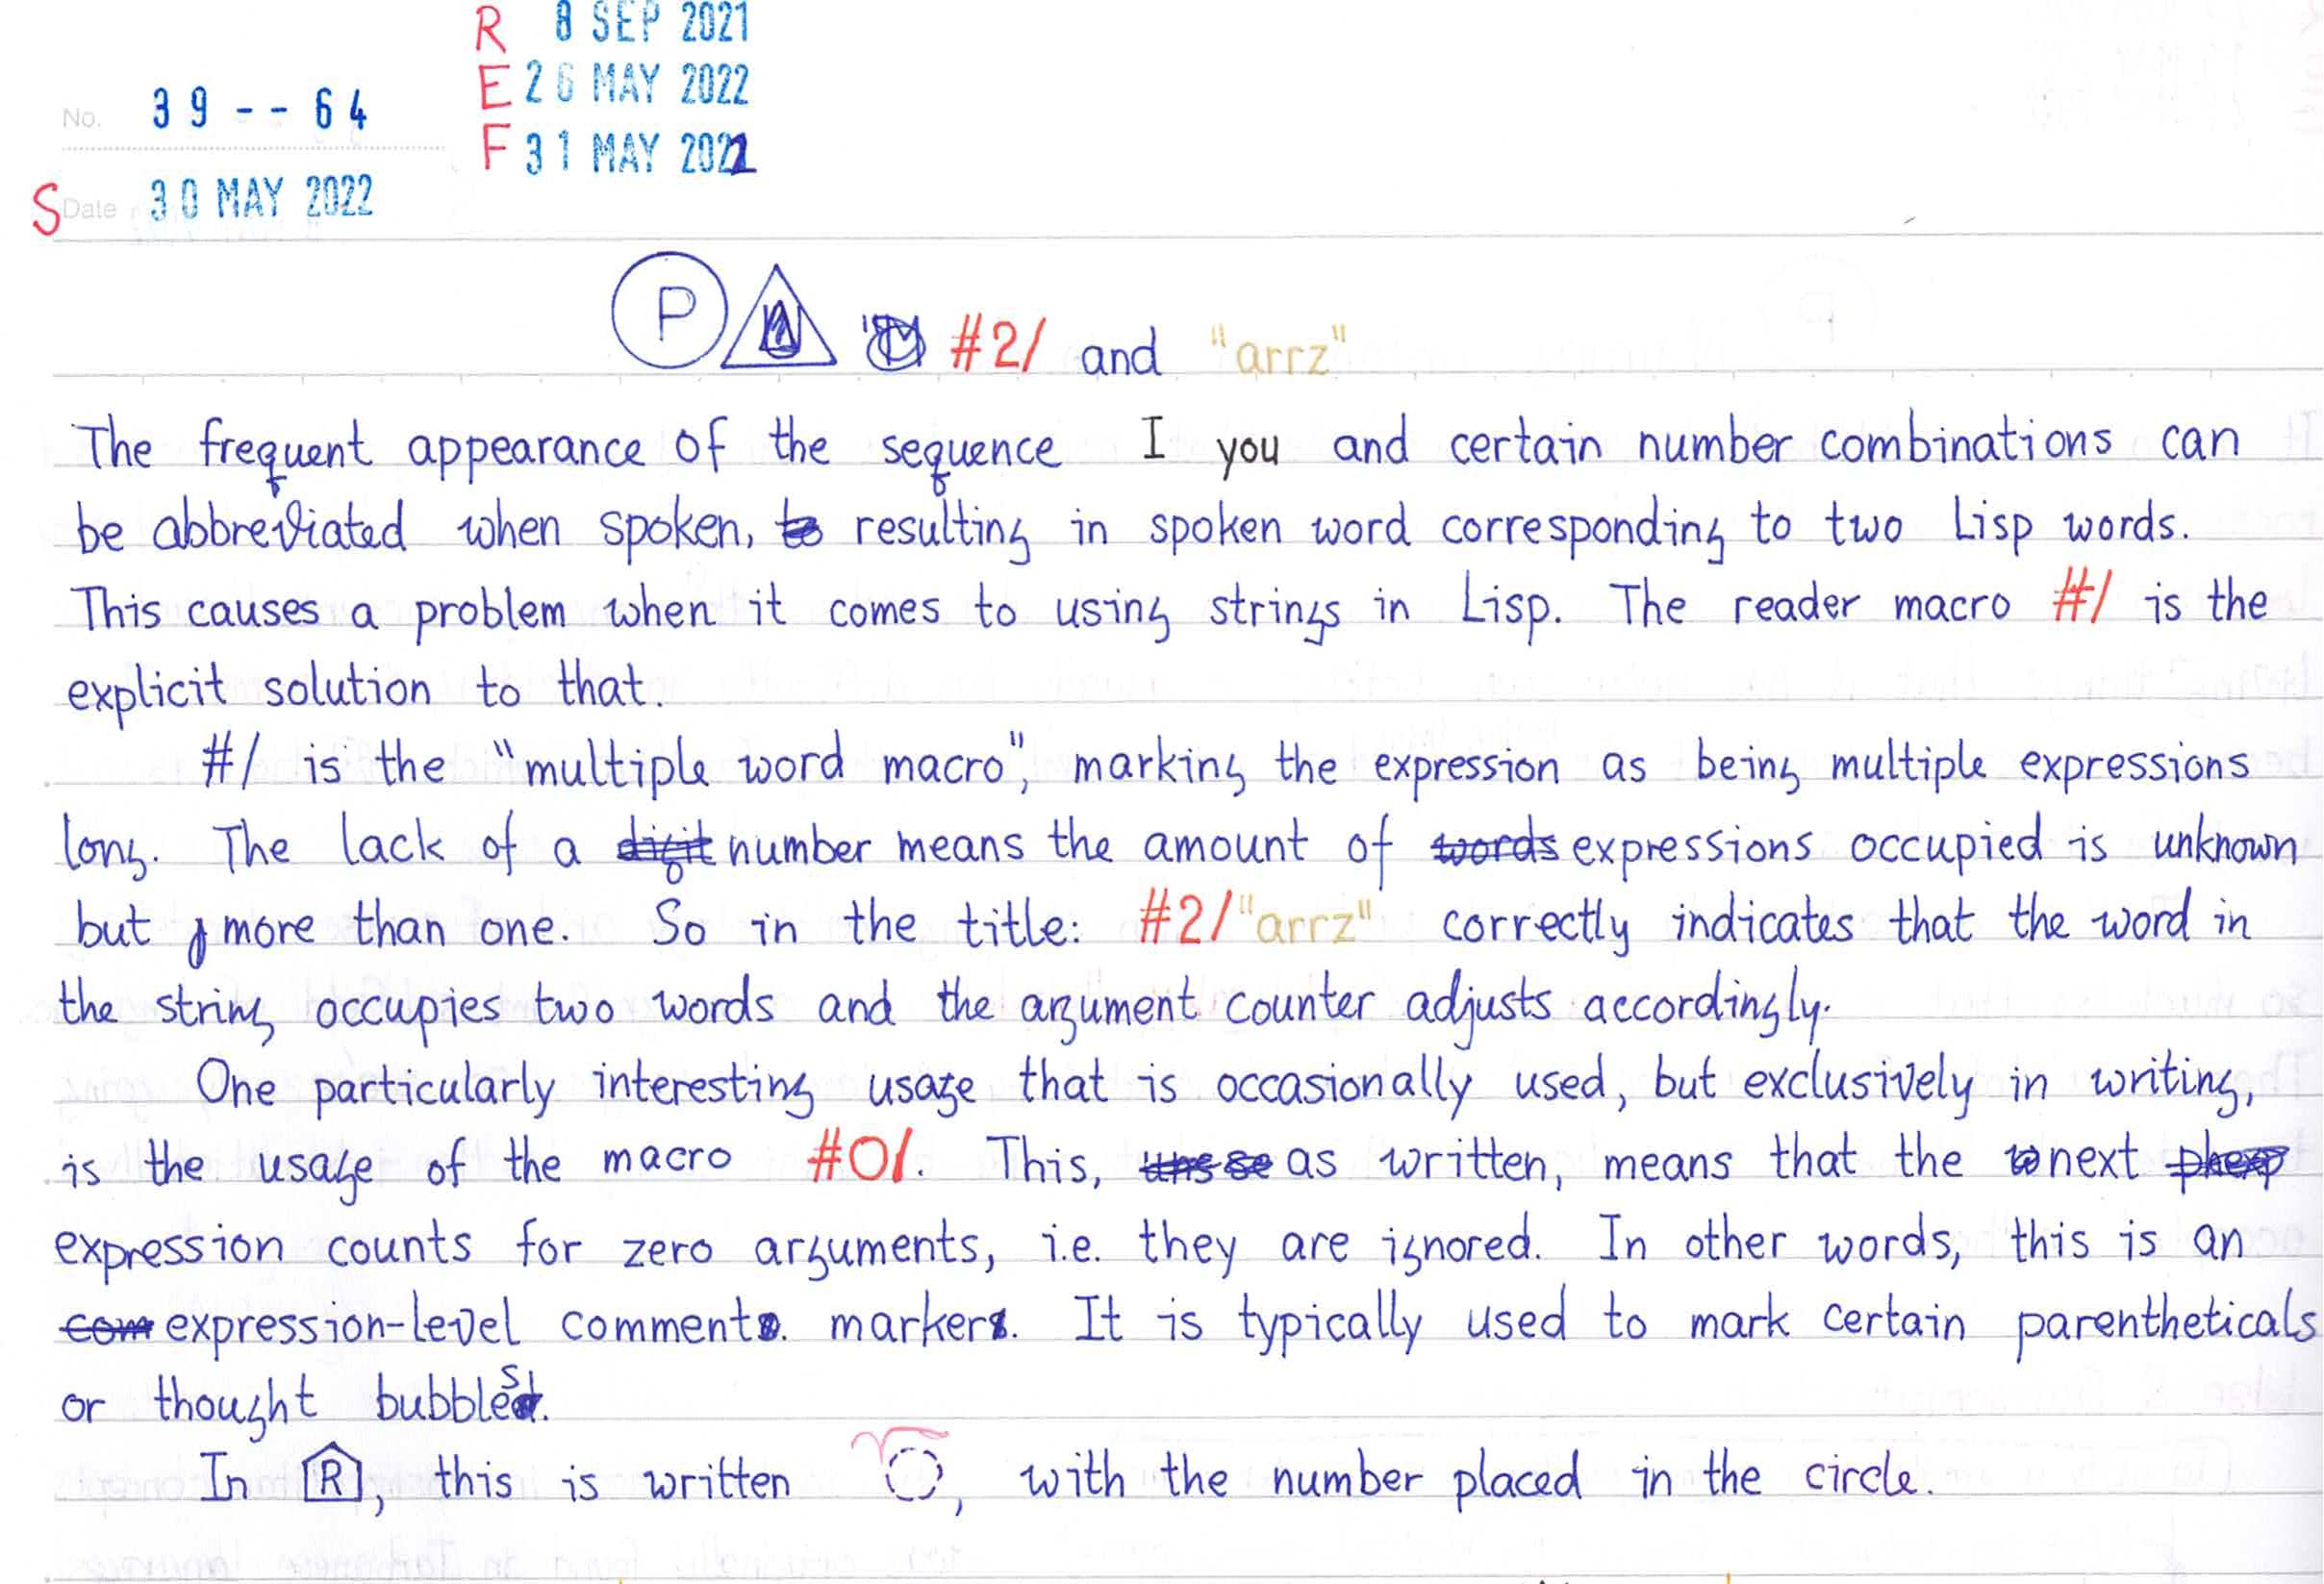 R 8 SEP 2021
E 26 MAY 2022
No. 39--64
F 31 MAY 2021
S Date 30 MAY 2022
P #2/ and "arrz"
The frequent appearance of the sequence I you and certain number combinations can
be abbreviated when spoken, to resulting in spoken word corresponding to two Lisp words.
This causes a problem when it comes to using strings in Lisp. The reader macro #/ is the
explicit solution to that.
#/ is the "multiple word macro", marking the expression as being multiple expressions
long. The lack of a digit number means the amount of words expressions occupied is unknown
but more than one. So in the title: #2/"arrz" correctly indicates that the word in
the string occupies two words and the argument counter adjusts accordingly.
One particularly interesting usage that is occasionally used, but exclusively in writing,
is the usage of the macro #0/. This, as written, means that the next
expression counts for zero arguments, i.e. they are ignored. In other words, this is an
com expression-level comment. marker. It is typically used to mark certain parentheticals
or thought bubbles.
In R, this is written , with the number placed in the circle.